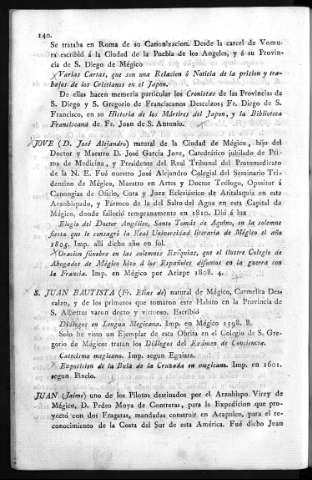 140.
Se trataba en Roma de su Canonizacion. Desde la carcel de Vomu-
ra escribió á la Ciudad de la Puebla de los Angeles, y á su Provin-
cia de S. Diego de Mégico
Varias Cartas, que son una Relacion ó Noticia de la prision y tra-
bajos de los Cristianos en el Japon.
De ellas hacen memoria particular los Cronistas de las Provincias de
S. Diego y S. Gregorio de Franciscanos Descalzos; Fr. Diego de S.
Francisco, en su Historia de los Mártires del Japon, y la Biblioteca
Franciscana de Fr. Juan de S. Antonio.
JOVE (D. José Alejandro) natural de la Ciudad de Mégico, hijo del
Doctor y Maestro D. José Garcia Jove, Catedrático jubilado de Pri-
ma de Medicina, y Presidente del Real Tribunal del Protomedicato
de la N. E. Fué nuestro José Alejandro Colegial del Seminario Tri-
dentino de Mégico, Maestro en Artes y Doctor Teólogo, Opositor á
Canongias de Oficio, Cura y Juez Eclesiástico de Atitalaquia en este
Arzobispado, y Párroco de la del Salto del Agua en esta Capital de
Mégico, donde falleció tempranamente en 1810. Dió á luz
Elogio del Doctor Angélico, Santo Tomás de Aquino, en la solemne
fiesta que le consagró la Real Universidad literaria de Mégico el año
1805. Imp. alli dicho año en fol.
Oracion fúnebre en las solemnes Exéquias, que el Ilustre Colegio de
Abogados de Mégico hizo á los Españoles difuntos en la guerra con
la Francia. Imp. en Mégico por Arizpe 1808. 4.
S. JUAN BAUTISTA (Fr. Elias de) natural de Mégico, Carmelita Des-
calzo, y de los primeros que tomaron este Habito en la Provincia de
S. Alberto: varon docto y virtuoso. Escribió
Diálogos en Lengua Megicana. Imp. en Mégico 1598. 8.
Solo he visto un Ejemplar de esta Obrita en el Colegio de S. Gre-
gorio de Mégico: tratan los Diálogos del Exámen de Conciencia.
Catecismo megicano. Imp. segun Eguiara.
Exposicion de la Bula de la Cruzada en megicano. Imp. en 1601.
segun Pinelo.
JUAN (Jaime) uno de los Pilotos destinados por el Arzobispo Virey de
Mégico, D. Pedro Moya de Contreras, para la Expedicion que pro-
yectó con dos Fragatas, mandadas construir en Acapulco, para el re-
conocimiento de la Costa del Sur de esta América. Fué dicho Juan